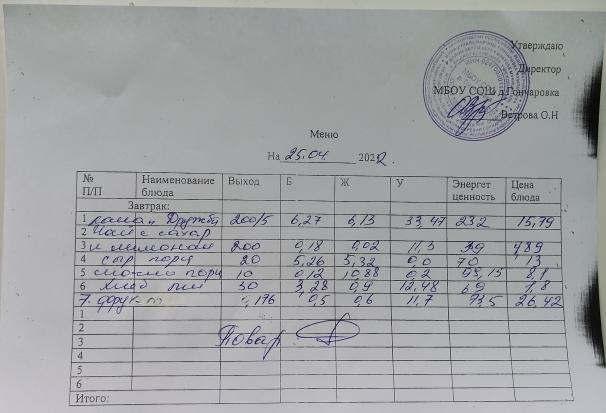 Утверждаю
Директор
МБОУ СОШ д.Гончаровка
Ветрова О.Н
Меню
На 25.04. 2022.
№ П/П Наименование блюда Выход Б Ж У Энергет ценность Цена блюда
Завтрак:
1 каша Дружба 200/5 6,27 6,13 33,47 232 15,79
2 Чай с сахар
3 и лимоном 200 0,18 0,02 11,3 4,89
4 сыр порц 20 5,26 5,32 0,0 70 13
5 масло порц 10 0,12 10,88 0,2 98,15 8,1
6 хлеб пш 30 3,28 0,9 12,48 69 1,8
7. 0,5 0,6 11,7 73,5 26,42
1
2
3 Повар
4
5
6
Итого: